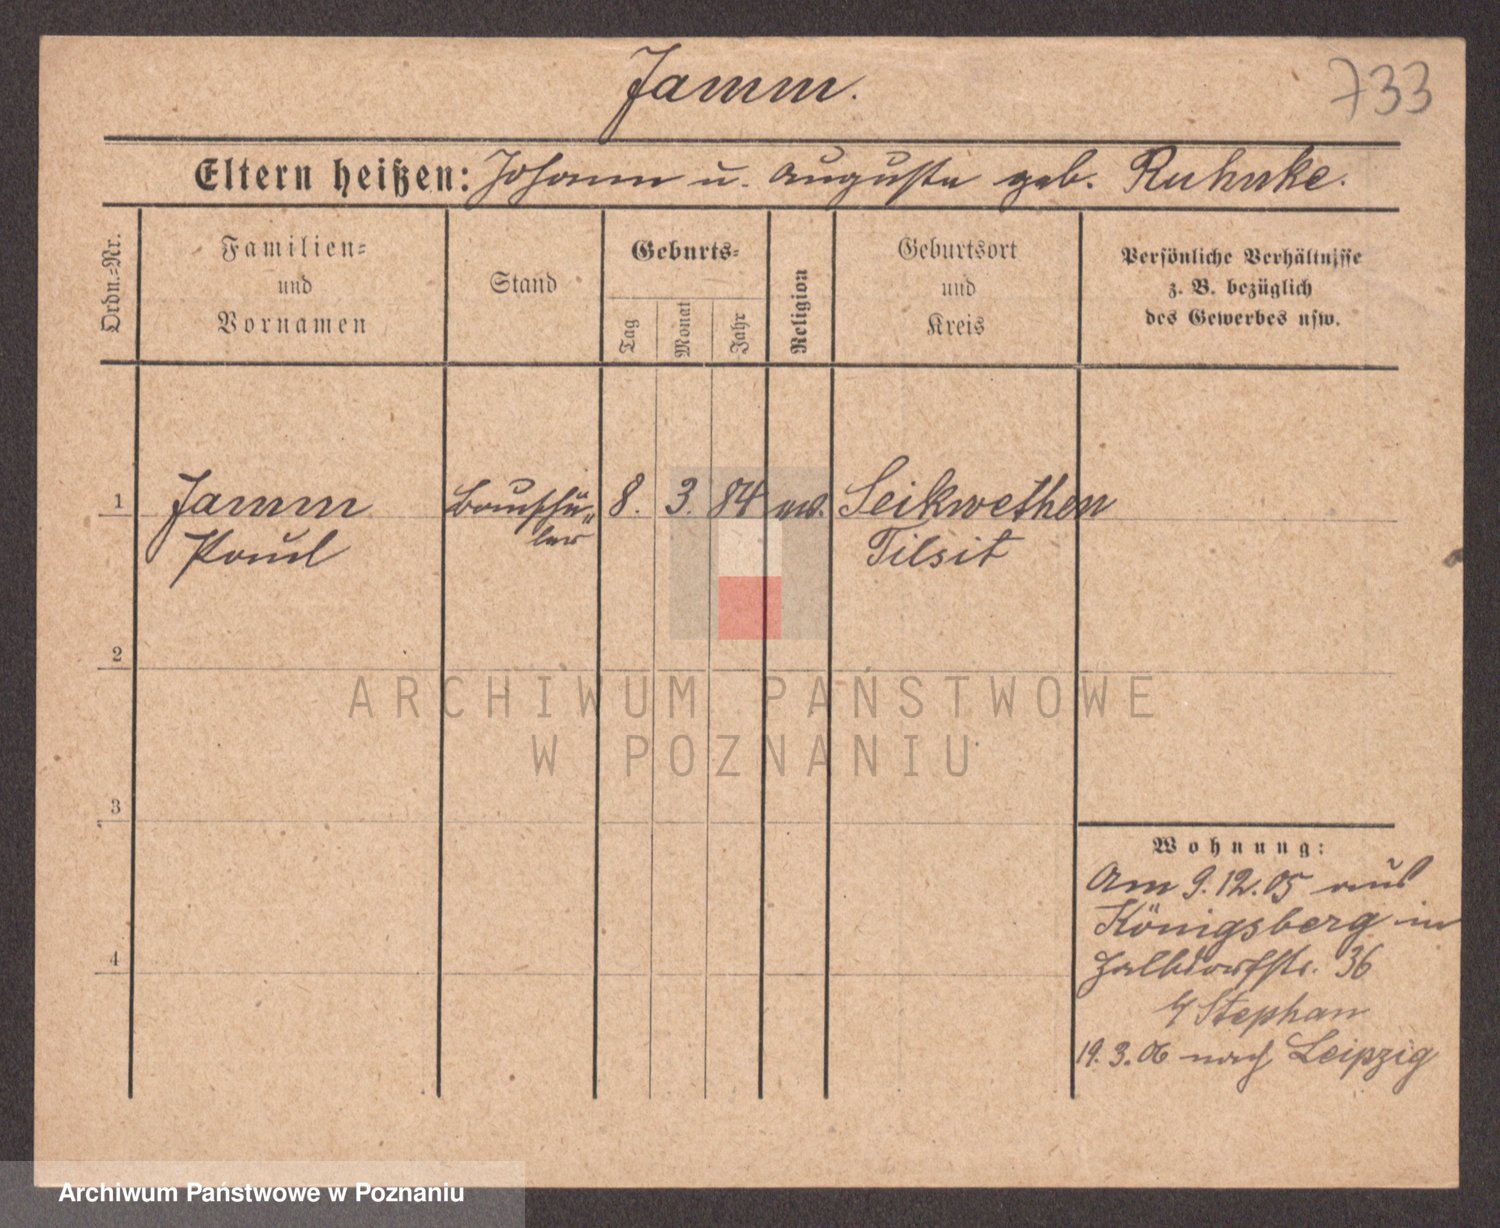 Jamm.
733
Eltern heißen: Johann u. Auguste geb. Ruhnke.
Ordn.=Nr.
Familien=
und
Vornamen
Stand
Geburts=
Tag
Monat
Jahr
Religion
Geburtsort
und
Kreis
Persönliche Verhältnisse
z. B. bezüglich
des Gewerbes usw.
1
Jamm
Paul
Bauschü-
ler
8. 3. 84
ev.
Seikwethen
Tilsit
2
3
4
Wohnung:
Am 9.12.05 aus
Königsberg in
Halbdorfstr. 36
b/ Stephan
19.3.06 nach Leipzig
ARCHIWUM PAŃSTWOWE
W POZNANIU
Archiwum Państwowe w Poznaniu